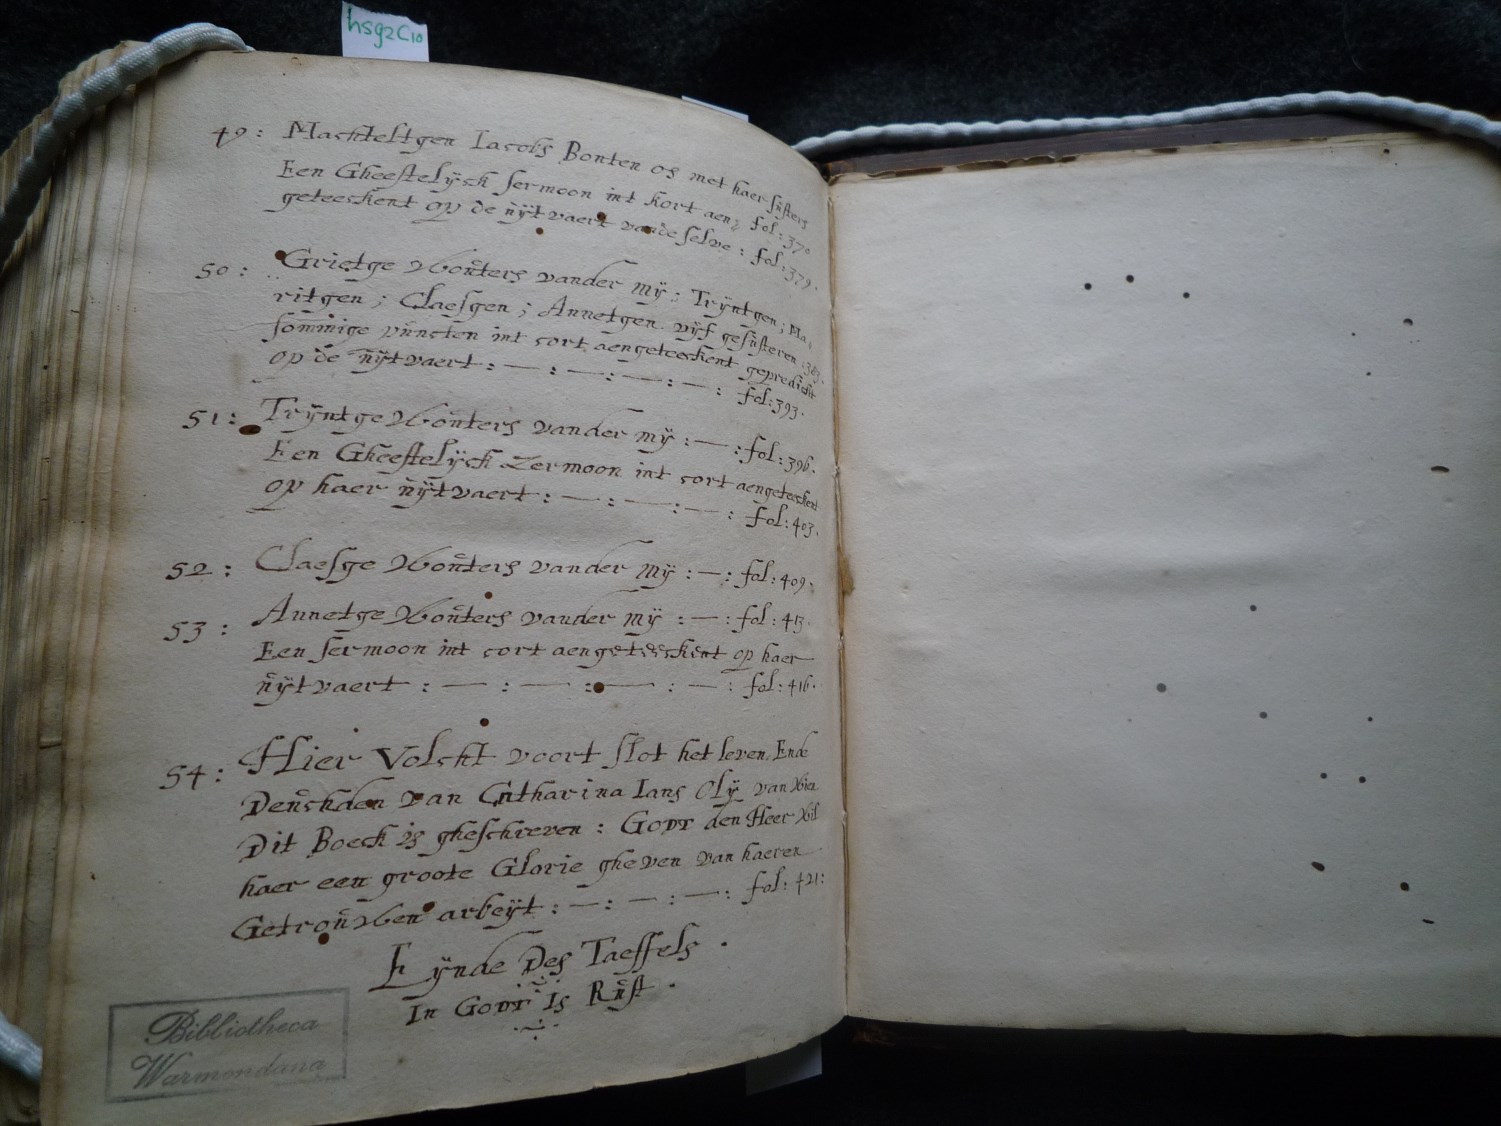 hs92C10
49: Machteltgen Iacobs Bonten os met haer süsters
Een Gheestelÿck sermoon int kort aen, fol: 370
geteeckent op de üÿtvaert vande selve: fol: 379.
50: Grietge Woüters vander Mÿ; Trÿntgen; Ma,
ritgen; Claesgen; Annetgen vÿf gesüsteren: 383.
sommige püncten int cort aengeteeckent gepredickt
op de üÿtvaert: —:—:—:—: fol: 393.
51: Trÿntge Woüters vander mÿ: —: fol: 396.
Een Gheestelÿck Zermoon int cort aengeteeckent
op haer üÿtvaert: —: —: —: fol: 403.
52: Claesge Woüters vander Mÿ: —: fol: 409.
53: Annetge Woüters vander mÿ: —: fol: 413.
Een sermoon int cort aengeteeckent op haer
üÿtvaert: — : — : — : — : fol: 416.
54: Hier Volcht voort slot het leven Ende
Deüchden van Catharina Ians Olÿ van Wien
Dit Boeck is gheschreven: Godt den Heer Wil
haer een groote Glorie gheven van haeren
Getroüwen arbeÿt: —: — : —: fol: 421:
Eÿnde Des Taeffels.
In Godt Is Rüst.
Bibliotheca
Warmondana